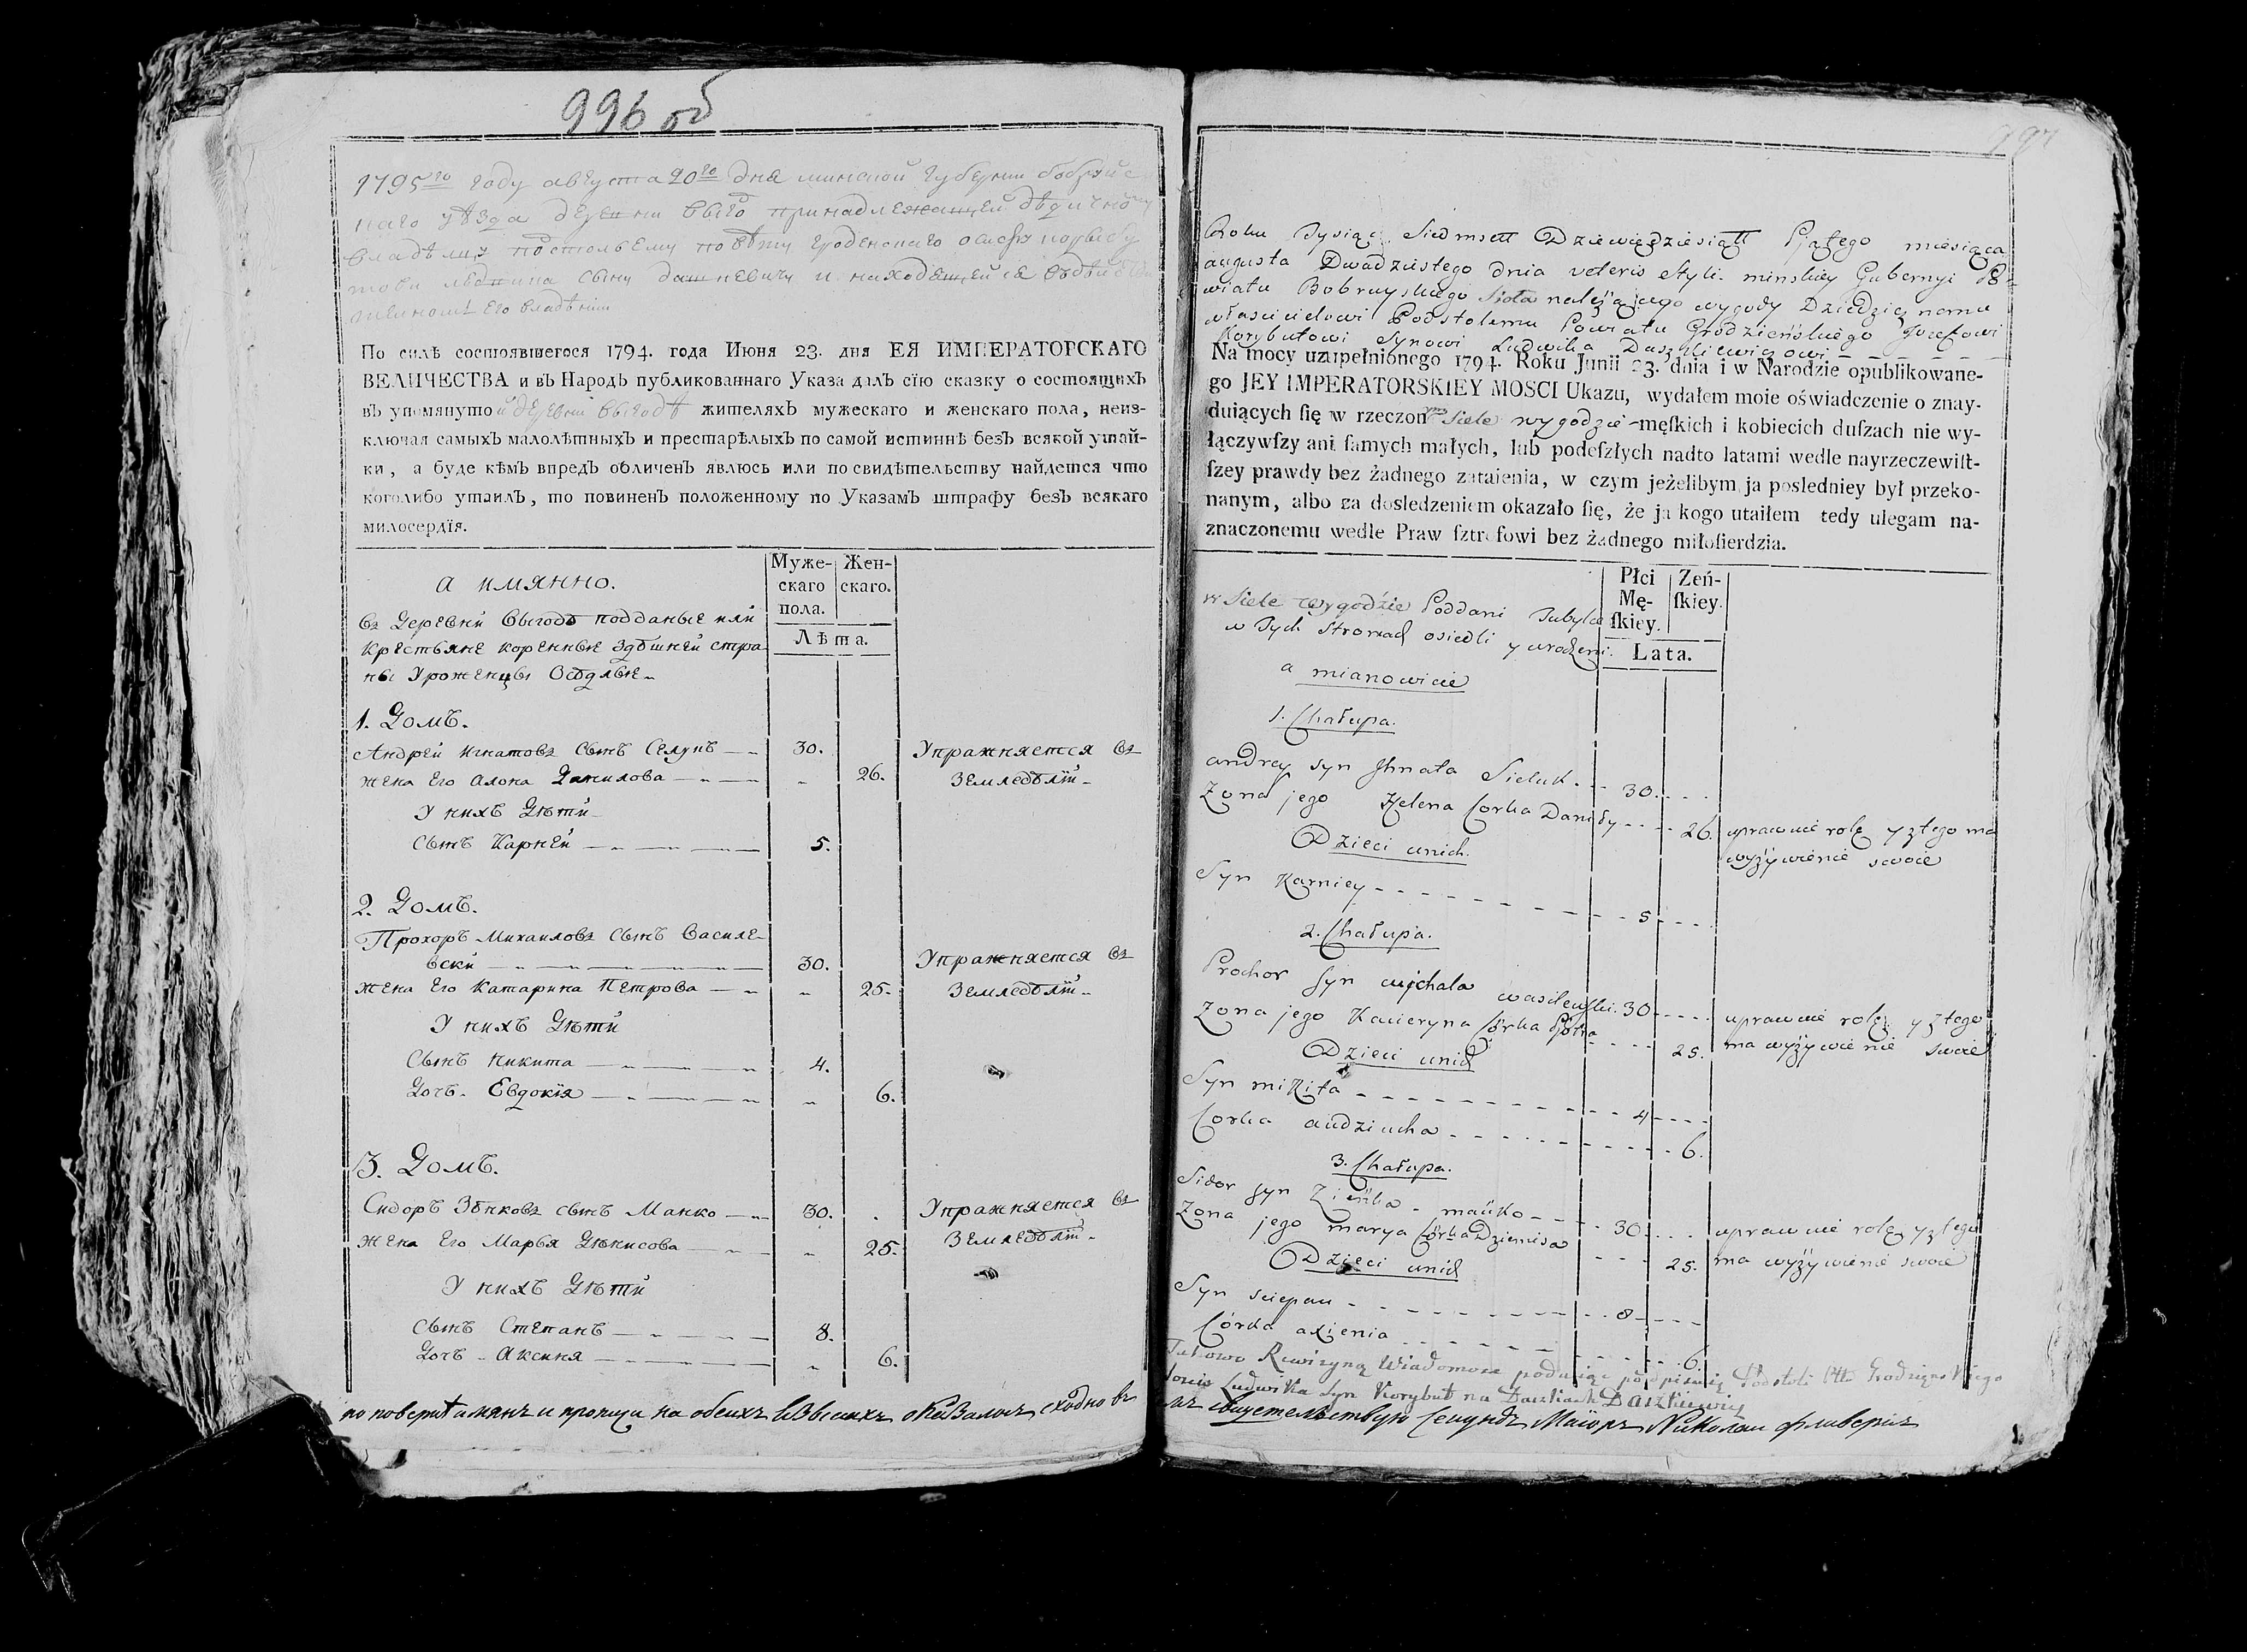 996 об
1795го году августа 20го дня минской губернии бобруйс
каго уѣзда деревни выго принадлежащей дѣдично
владѣлцу подстольему повѣту гроденскаго
сыну дашкевичу и находящейся
его владѣнии
По силѣ состоявшегося 1794. года Июня 23. дня ЕЯ ИМПЕРАТОРСКАГО
ВЕЛИЧЕСТВА и въ Народъ публикованнаго Указа далъ сїю сказку о состоящихъ
въ упомянутой деревни выгодѣ жителяхъ мужескаго и женскаго пола, неиз-
ключая самыхъ малолѣтныхъ и престарѣлыхъ по самой истиннѣ безъ всякой утай-
ки, а буде кѣмъ впредъ обличенъ явлюсь или по свидѣтельству найдется что
коголибо утаилъ, то повиненъ положенному по Указамъ штрафу безъ всякаго
милосердїя.
а имянно.
Муже-
скаго
пола.
Жен-
скаго.
Лѣта.
Въ Деревни Выгодѣ подданые или
крестьяне коренные здѣшней стра
ны Уроженцы Осѣдлые
1. Домъ.
Андрей Игнатовъ сынъ Селукъ 30. Упражняется въ
жена его Алона Данилова 26. Земледѣлїи
У нихъ Дѣти
сынъ Карней 5.
2. Домъ.
Прохоръ Михаиловъ сынъ Василе-
вски 30. Упражняется въ
жена Его Катарина Петрова 25. Земледѣлїи
У нихъ Дѣти
Сынъ Никита 4.
Дочъ Евдокїя 6.
3. Домъ.
Сидоръ Зѣнковъ сынъ Манко 30. Упражняется въ
жена Его Марья Дѣнисова 25. Земледѣлїи
У нихъ Дѣти
сынъ Степанъ 8.
Дочъ Аксиня 6.
997
Roku Tysiąc Siedmsett Dziewiędziesiątt Pjątego miesiąca
augusta Dwadziestego dnia veteris styli minskiey Gubernyi Po-
wiatu Bobruyskiego Sioła należącego wygody Dziedzicznemu
własicielowi Podstolemu Powiatu Grodzieńskiego Jozefowi
Korybutowi Synowi Ludwika Daszkiewiczowi
Na mocy uzupełnionego 1794. Roku Junii 23. dnia i w Narodzie opublikowane-
go JEY IMPERATORSKIEY MOSCI Ukazu, wydałem moie oświadczenie o znay-
duiących ſię w rzeczonym Siele wygodzie męſkich i kobiecich duſzach nie wy-
łączywſzy ani ſamych małych, lub podeſzłych nadto latami wedle nayrzeczewiſt-
ſzey prawdy bez żadnego zataienia, w czym jeżelibym ja posledniey był przeko-
nanym, albo za dosledzeniem okazało ſię, że ja kogo utaiłem tedy ulegam na-
znaczonemu wedle Praw ſztrofowi bez żadnego miłoſierdzia.
Płci
Mę-
ſkiey.
Zeń-
ſkiey.
Lata.
w Siele wygodzie Poddani Tubylce
w Tych Stronach osiedli y urodzeni.
a mianowicie
1. Chałupa.
andrey syn Jhnata Sieluk 30.
Zona jego Helena Corka Daniły 26. uprawuie rolę y z tego ma
Dzieci unich. wyżywienie swoie
Syn Karniey 5
2. Chałupa.
Prochor syn michala wasilewski. 30 uprawuie rolę y z tego
Zona jego Kacieryna Córka Piotra 25. ma wyżywienie swoie
Dzieci unich
Syn mikita 4
Corka audziucha 6.
3. Chałupa.
Sidor syn Zieńka mańko 30. uprawuie rolę y z tego
Zona jego marya Córka Dzienisa 25. ma wyżywienie swoie
Dzieci unich
Syn sciepan 8
Córka axienia 6.
Takowo Rewizyną Wiadomosc podaiąc podpisuię Podstoli Ptu Grodzienskiego
Ludwika Syn Korybut na Daszkach Daszkiewicz
по поверѣ на обеихъ языкахъ оказалось сходно въ
чемъ свидетелствую Секундъ Маиоръ Николаи